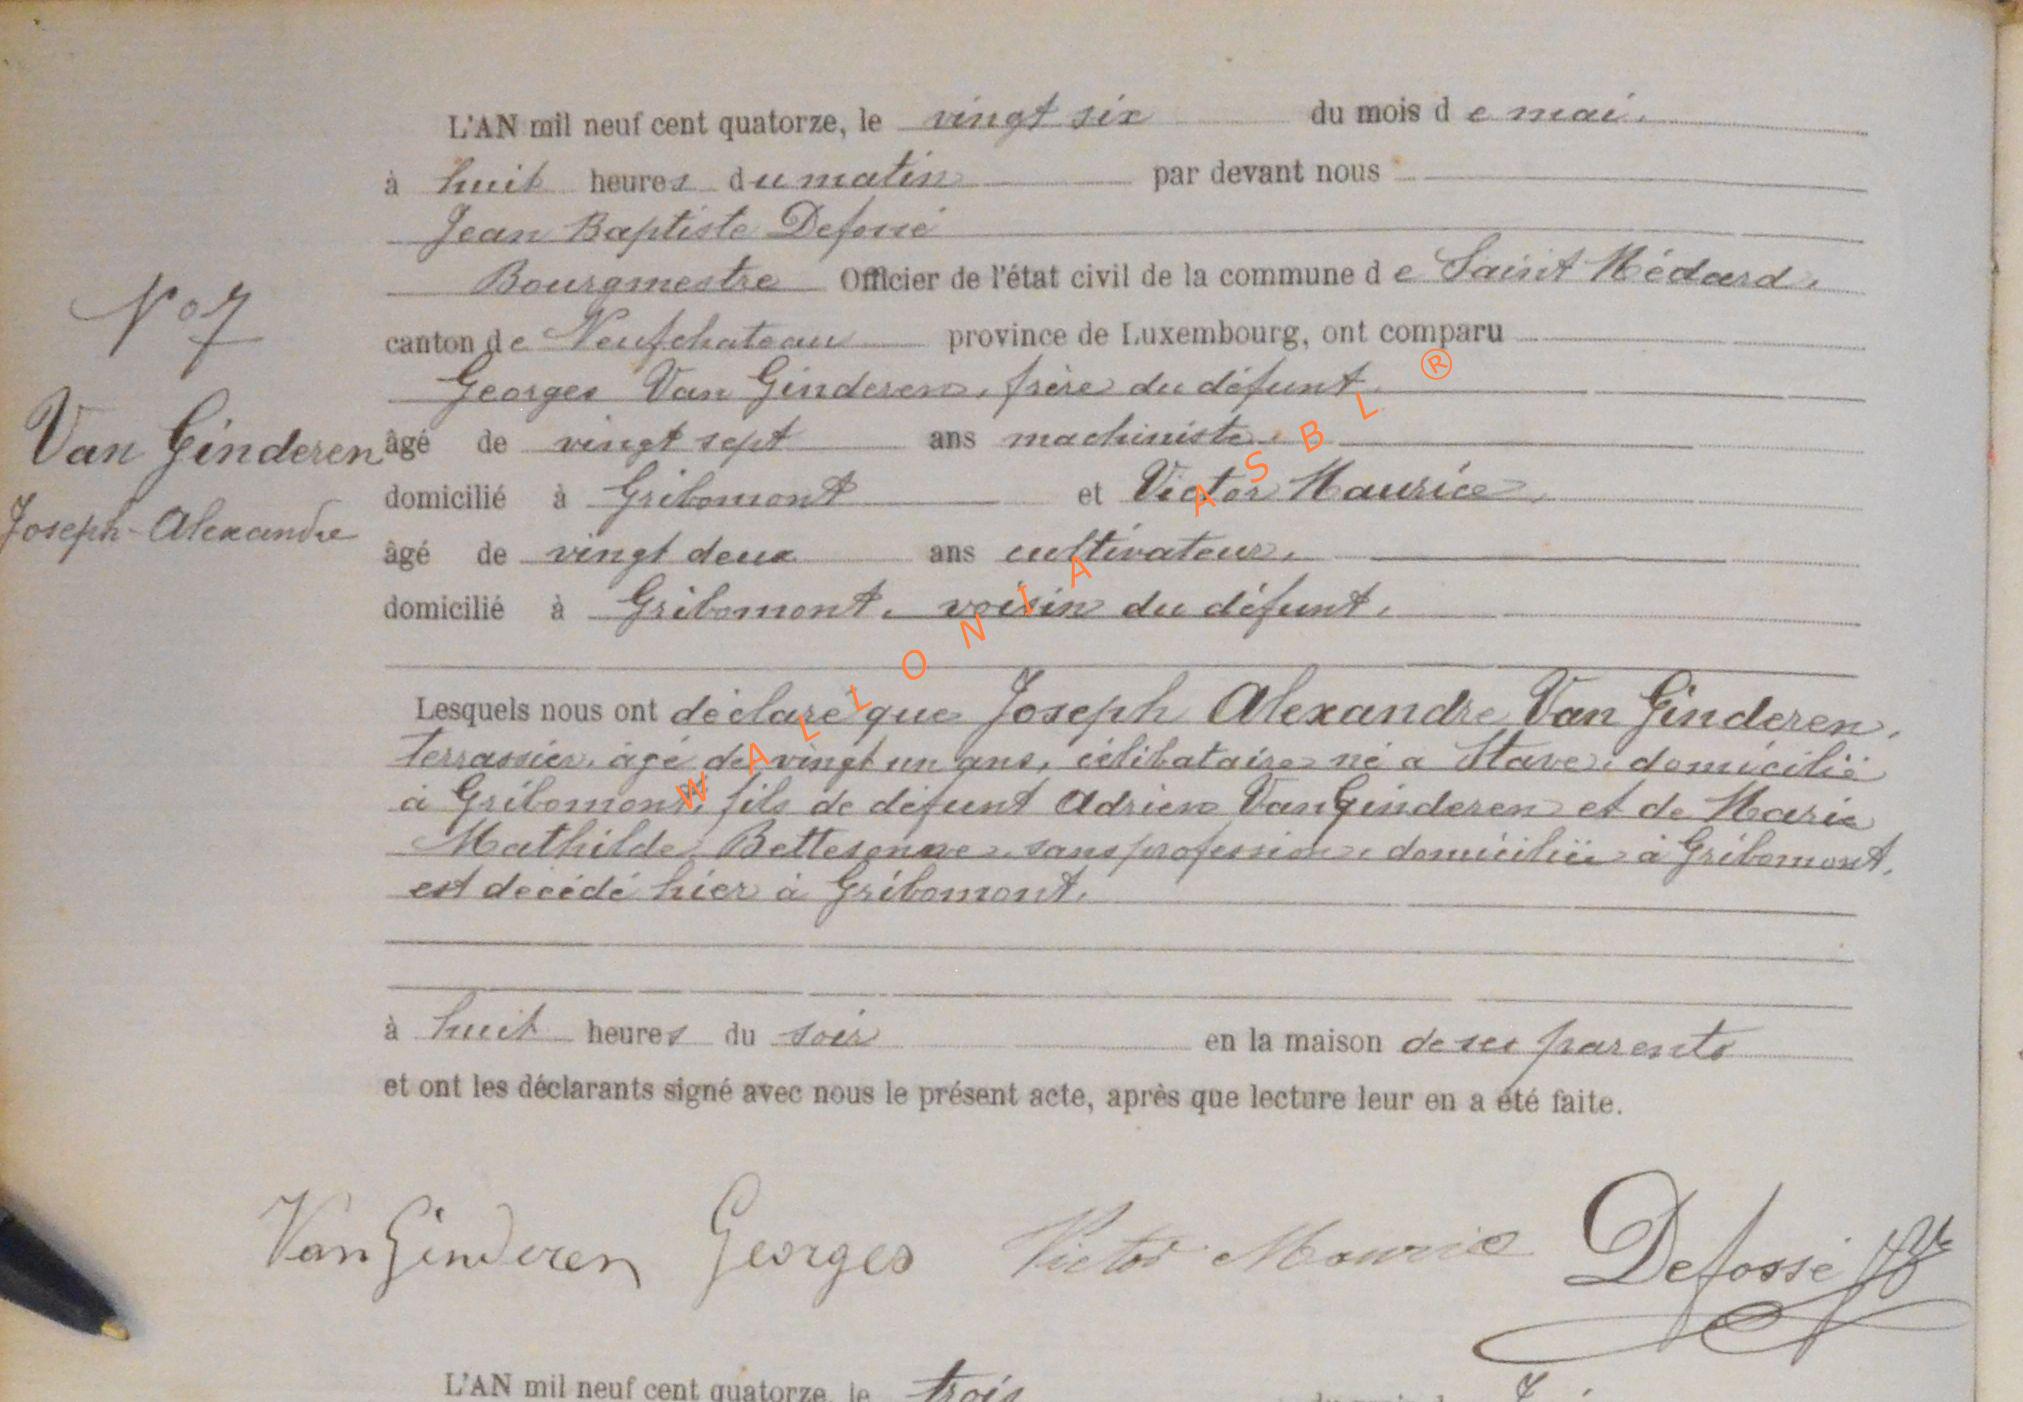 L'AN mil neuf cent quatorze, le vingt six du mois de mai.
à huit heures du matin par devant nous
Jean Baptiste Defossé
Bourgmestre Officier de l'état civil de la commune de Saint Médard.
N° 7
canton de Neufchateau province de Luxembourg, ont comparu
Georges Van Ginderen, frère du défunt.
Van Ginderen
âgé de vingt sept ans machiniste.
domicilié à Gribomont et Victor Maurice,
Joseph-Alexandre
âgé de vingt deux ans cultivateur.
domicilié à Gribomont. voisin du défunt.
Lesquels nous ont déclaré que Joseph Alexandre Van Ginderen,
terrassier, âgé de vingt un ans, célibataire né à Stave, domicilié
à Gribomont, fils de défunt Adrien Van Ginderen et de Marie
Mathilde, sans profession, domiciliée à Gribomont,
est décédé hier à Gribomont.
à huit heures du soir en la maison de ses parents
et ont les déclarants signé avec nous le présent acte, après que lecture leur en a été faite.
Van Ginderen Georges Victor Maurice Defossé JBte
L'AN mil neuf cent quatorze, le trois
WALLONIA ASBL ®